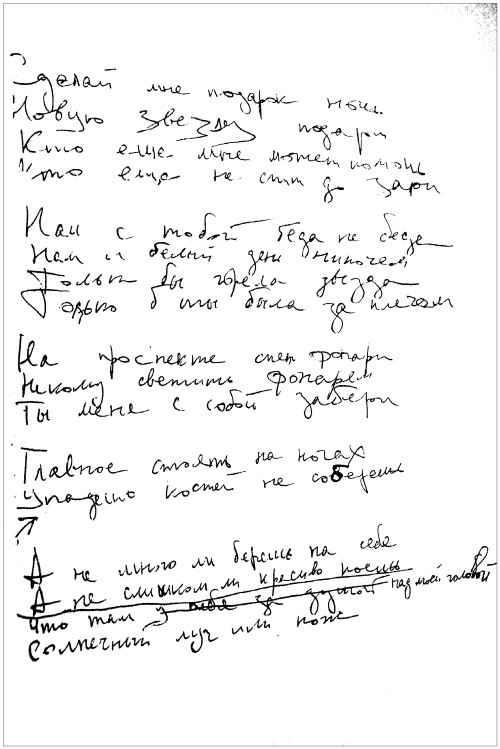 Сделай мне подарк ночь
Новую звезду подари
Кто еще мне может помочь
Кто еще не спит до зари
Нам с тобой беда не беда
Нам и белый день нипочем
Только бы горела звезда
Только б ты была за плечом
На проспекте спят фонари
Некому светить фонарем
Ты меня с собой забери
Главное стоять на ногах
Упадешь костей не соберешь
А не много ли берешь на себе
А не слишком ли красиво поешь
Что там у тебя за душой над моей головой
Солнечный луч или нож